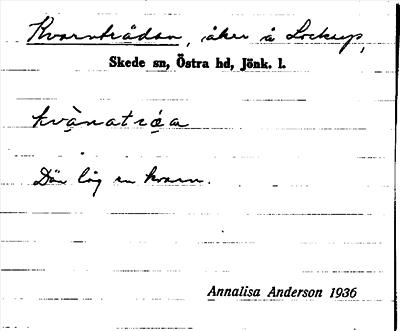 Kvarntrådan, åker å Lockup,
Skede sn, Östra hd, Jönk. l.
kvànatróa
Där låg en kvarn.
Annalisa Anderson 1936